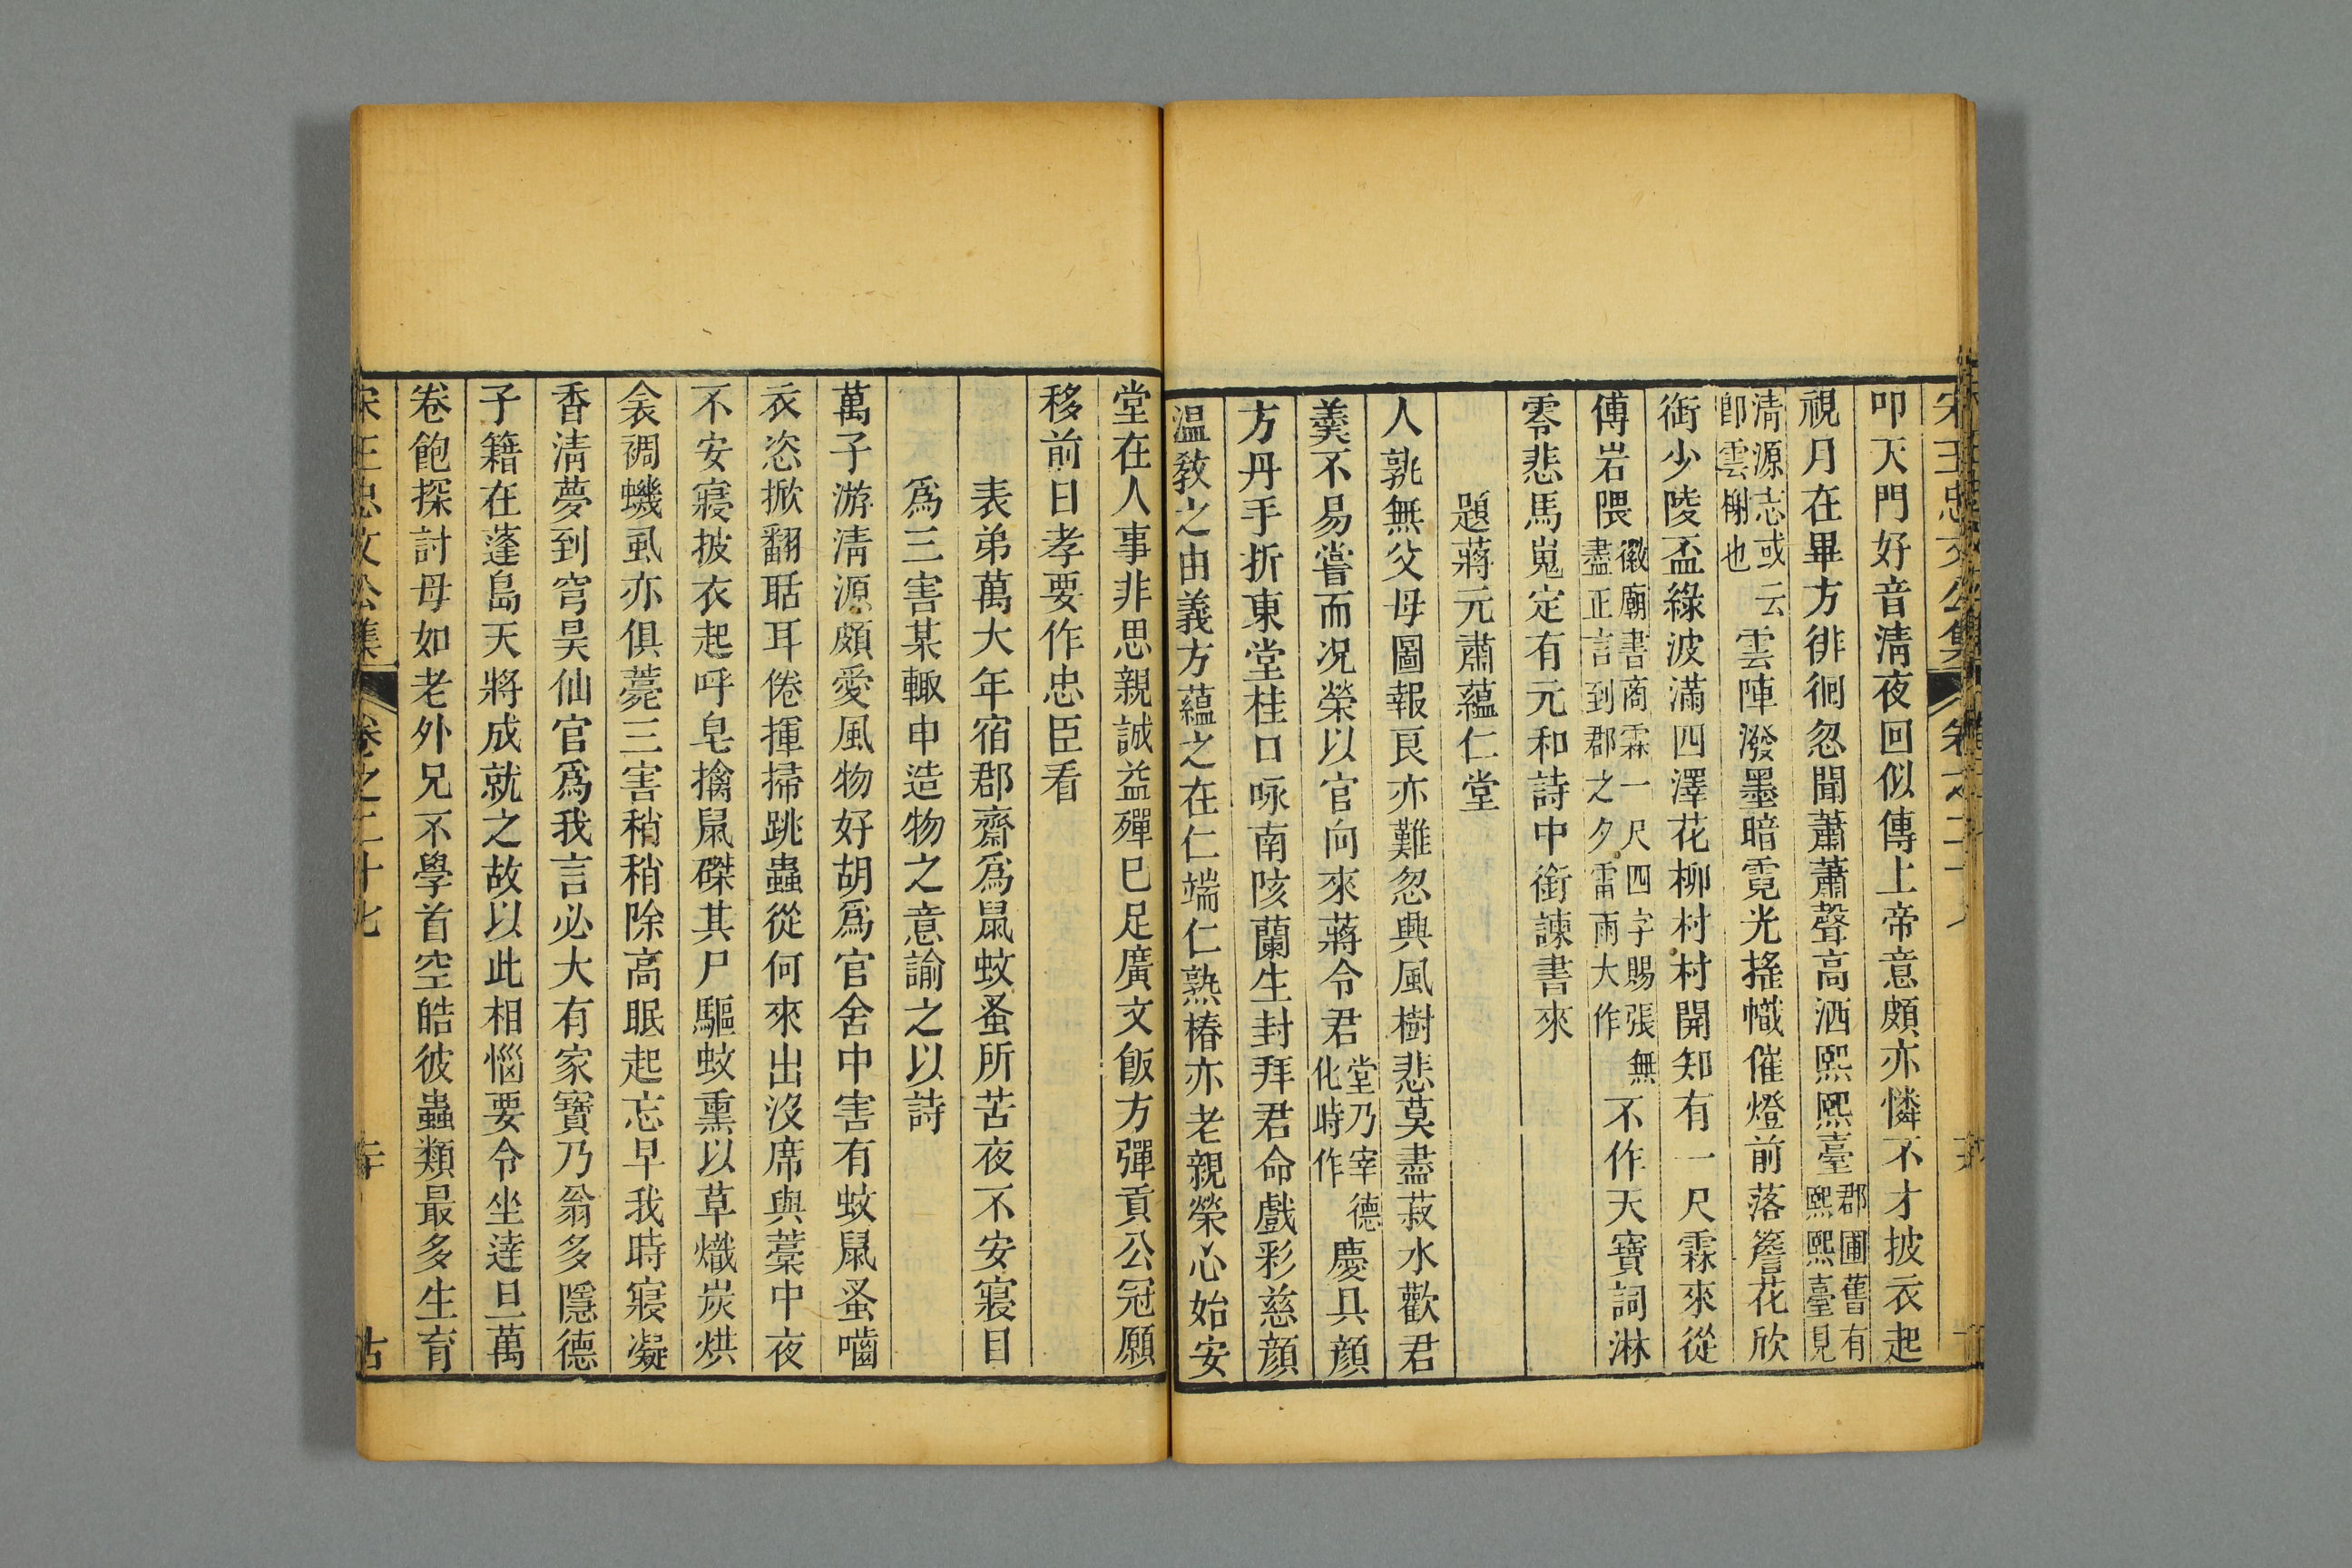 叩天門好音淸夜回似傳上帝意頗亦憐不才披衣起
視月在畢方徘徊忽聞蕭蕭聲高洒熙熙臺郡圃舊有熙熙臺見
淸源志或云卽雲榭也雲陣潑墨暗霓光搖幟催燈前落簷花欣
銜少陵盃綠波滿四澤花柳村村開知有一尺霖來從
傅岩隈徽廟書商霖一尺四字賜張無盡正言到郡之夕雷雨大作不作天寶詞淋
零悲馬嵬定有元和詩中銜諫書來
題蔣元肅蘊仁堂
人孰無父母圖報良亦難忽興風樹悲莫盡菽水歡君
羹不易嘗而况榮以官向來蔣令君堂乃宰德化時作慶具顔
方丹手折東堂桂口咏南陔蘭生封拜君命戲彩慈顔
溫敎之由義方蘊之在仁端仁熟椿亦老親榮心始安
堂在人事非思親誠益殫巳足廣文飯方彈貢公冠願
移前日孝要作忠臣看
表弟萬大年宿郡齋爲鼠蚊蚤所苦夜不安寢目
爲三害某輙申造物之意諭之以詩
萬子游淸源頗愛風物好胡爲官舍中害有蚊鼠蚤嚙
衣恣掀翻聒耳倦揮掃跳蟲從何來出沒席與藁中夜
不安寢披衣起呼皂擒鼠磔其尸驅蚊熏以草熾炭烘
衾裯蟣虱亦俱薨三害稍稍除高眠起忘早我時寢凝
香淸夢到穹昊仙官爲我言必大有家寶乃翁多隱德
子籍在蓬島天將成就之故以此相惱要令坐達旦萬
卷飽探討母如老外兄不學首空皓彼蟲類最多生育
宋王忠文公集 卷之二十七